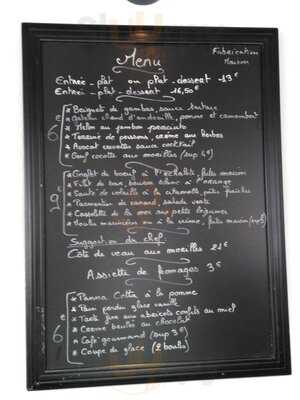 Menu
Fabrication
Maison
Entrée - plat ou plat - dessert 13€
Entrée - plat - dessert 16,50€
6€
* Beignets de gambas, sauce tartare
chaud d'andouille, pomme et camembert
* Melon au jambon
* Terrine de poissons, crème aux herbes
* Avocat crevettes sauce cocktail
* Oeuf cocotte aux morilles (sup 4€)
9€
* Onglet de boeuf à l'échalote, frites maison
* Filet de blanc à l'orange
* Sauté de volaille à la citronnelle,
* Parmentier de canard, salade verte
* Cassolette de la mer aux petits légumes
* Moules marinières ou à la crème, frites maison
Suggestion du chef
Côte de veau aux morilles 21€
Assiette de fromages 3€
6€
* Panna Cotta à la pomme
* Pain perdu glace vanille
* Tarte fine aux abricots confits au miel
* Crème brulée au chocolat
* Café gourmand (sup 3€)
* Coupe de glace (2 boules)